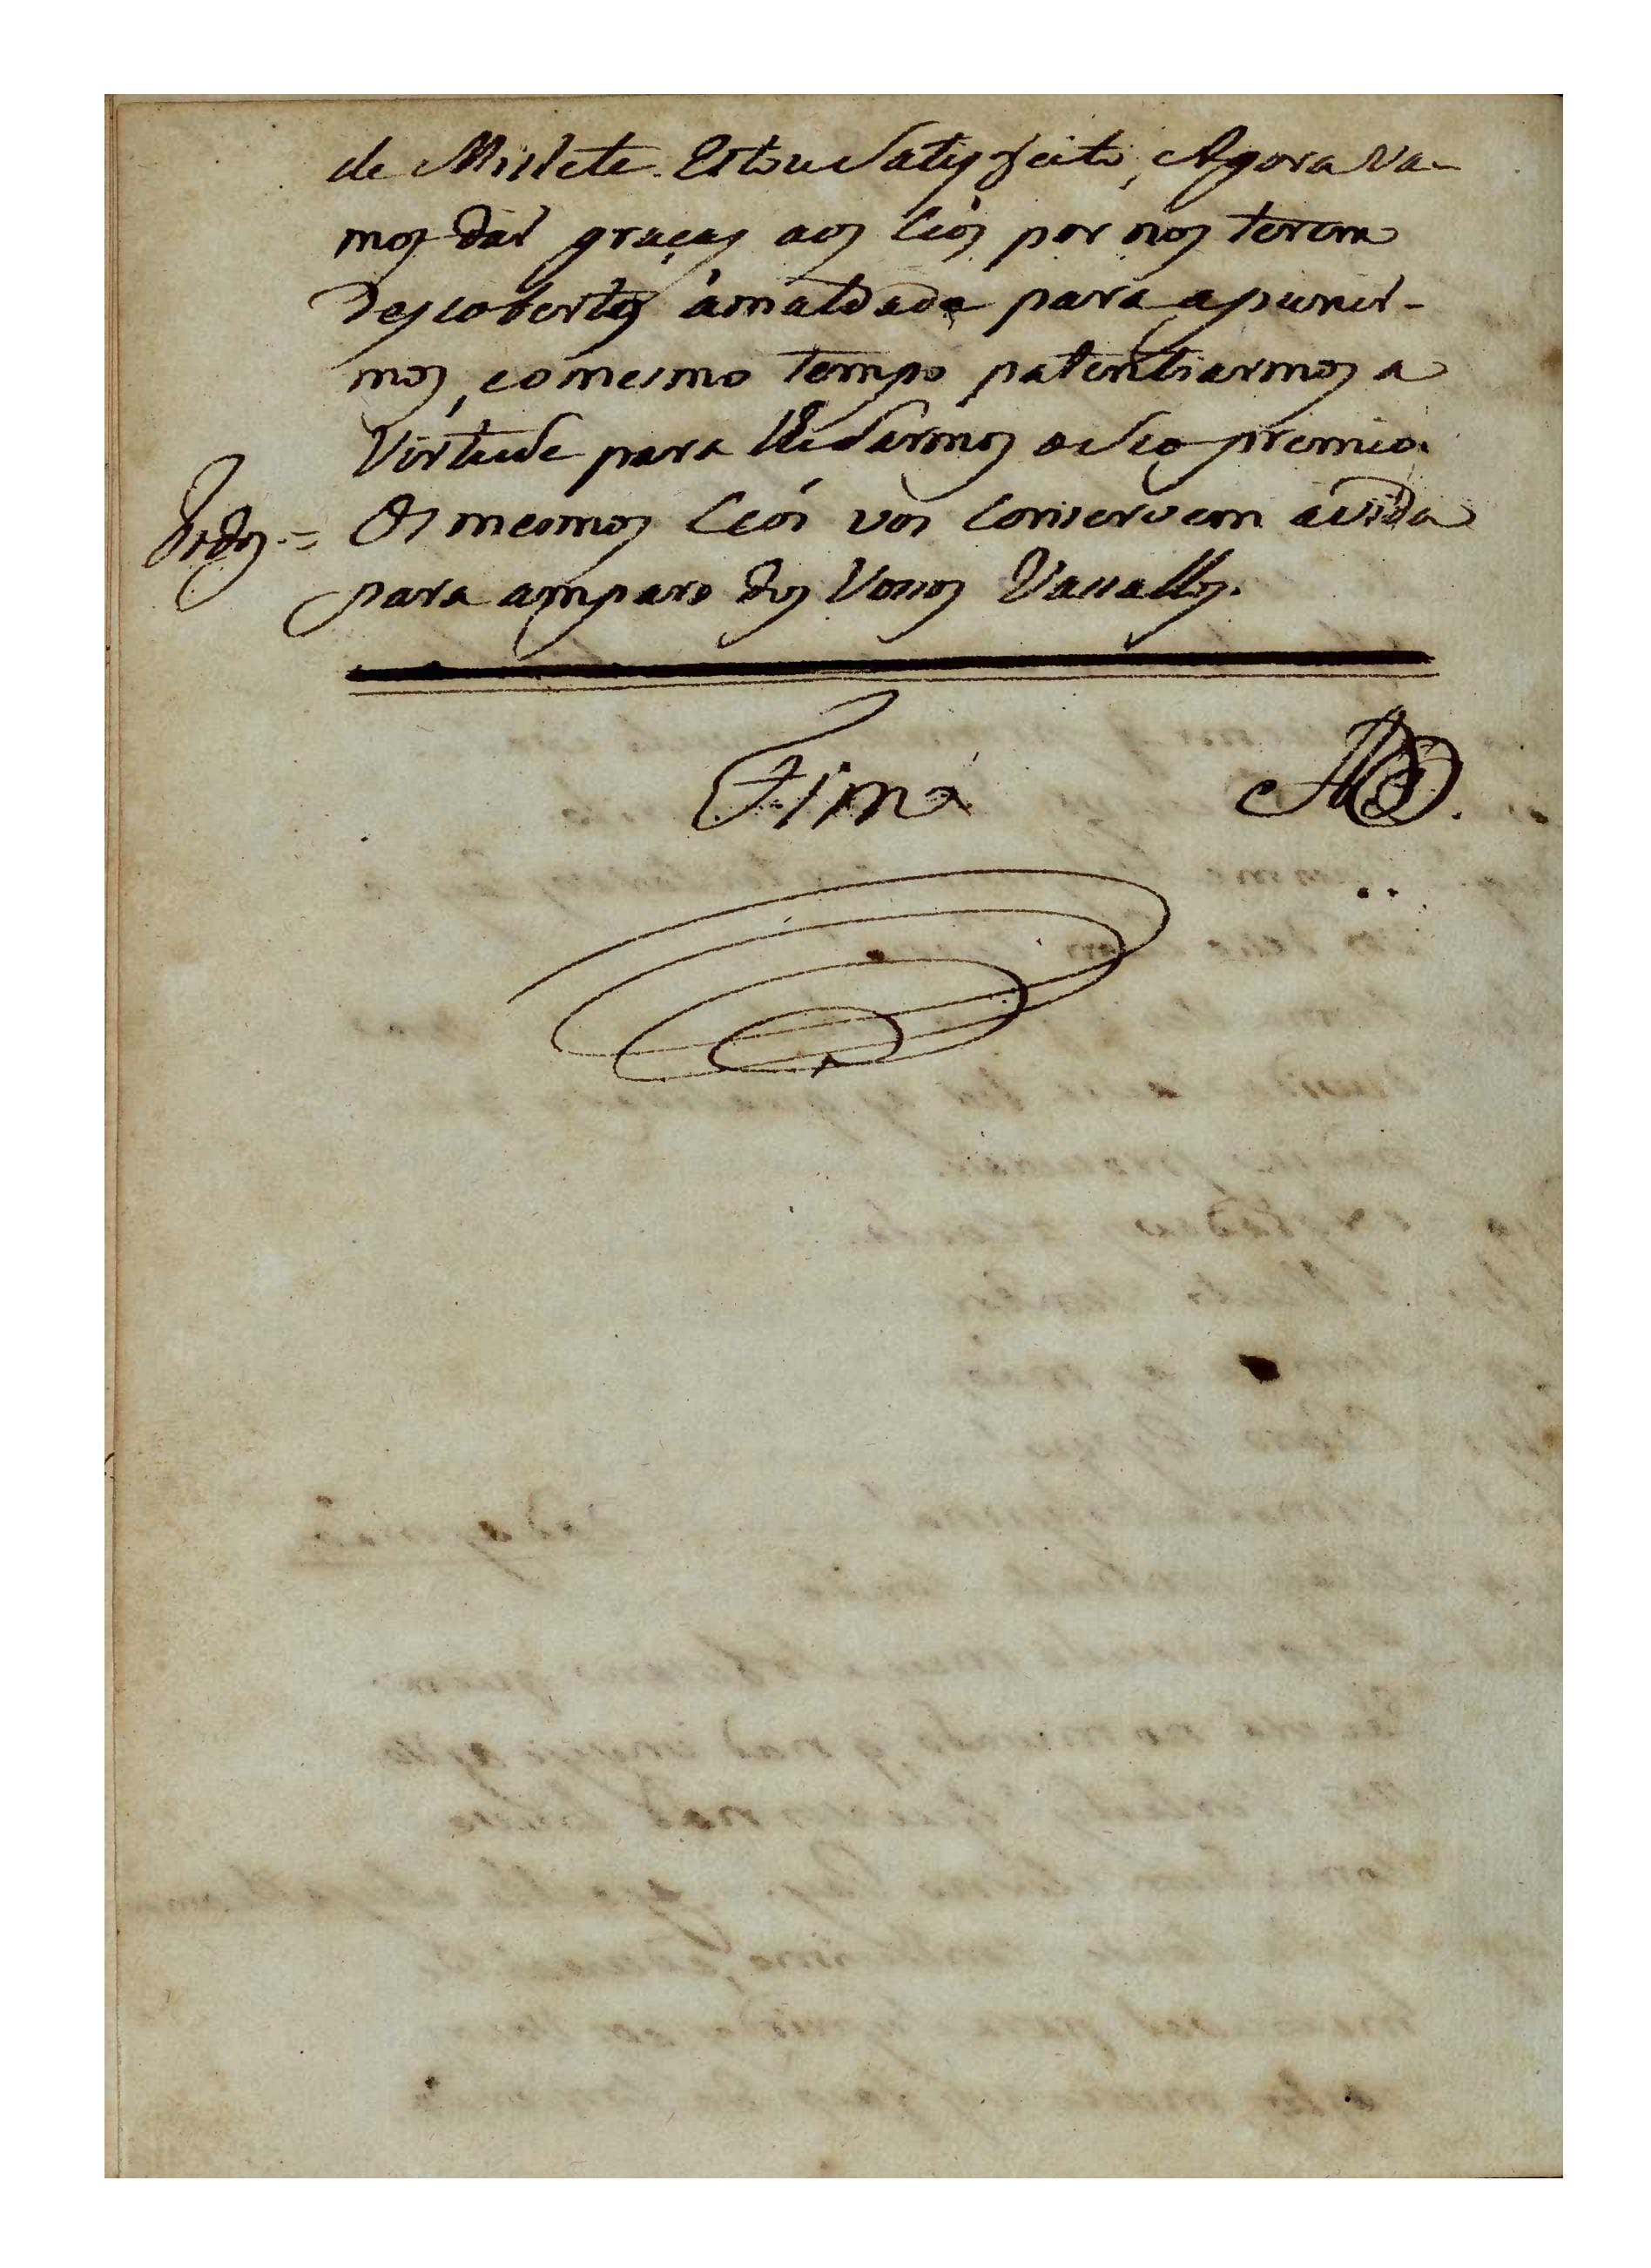 de Mislete. Estou Satisfeito, Agora va-
mos dar graças aos Ceos por nos terem
Descoberto amaldade para apunir-
mos, eomesmo tempo patentiarmos a
Virtude para lhedarmos oseo premio.
Todos = Os mesmos Ceos vos conservem avida
para amparo dos Vossos Vassallos.
Fim